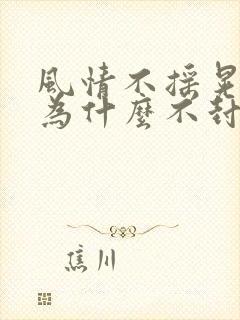 風情不摇晃
為什麼不封
焦川